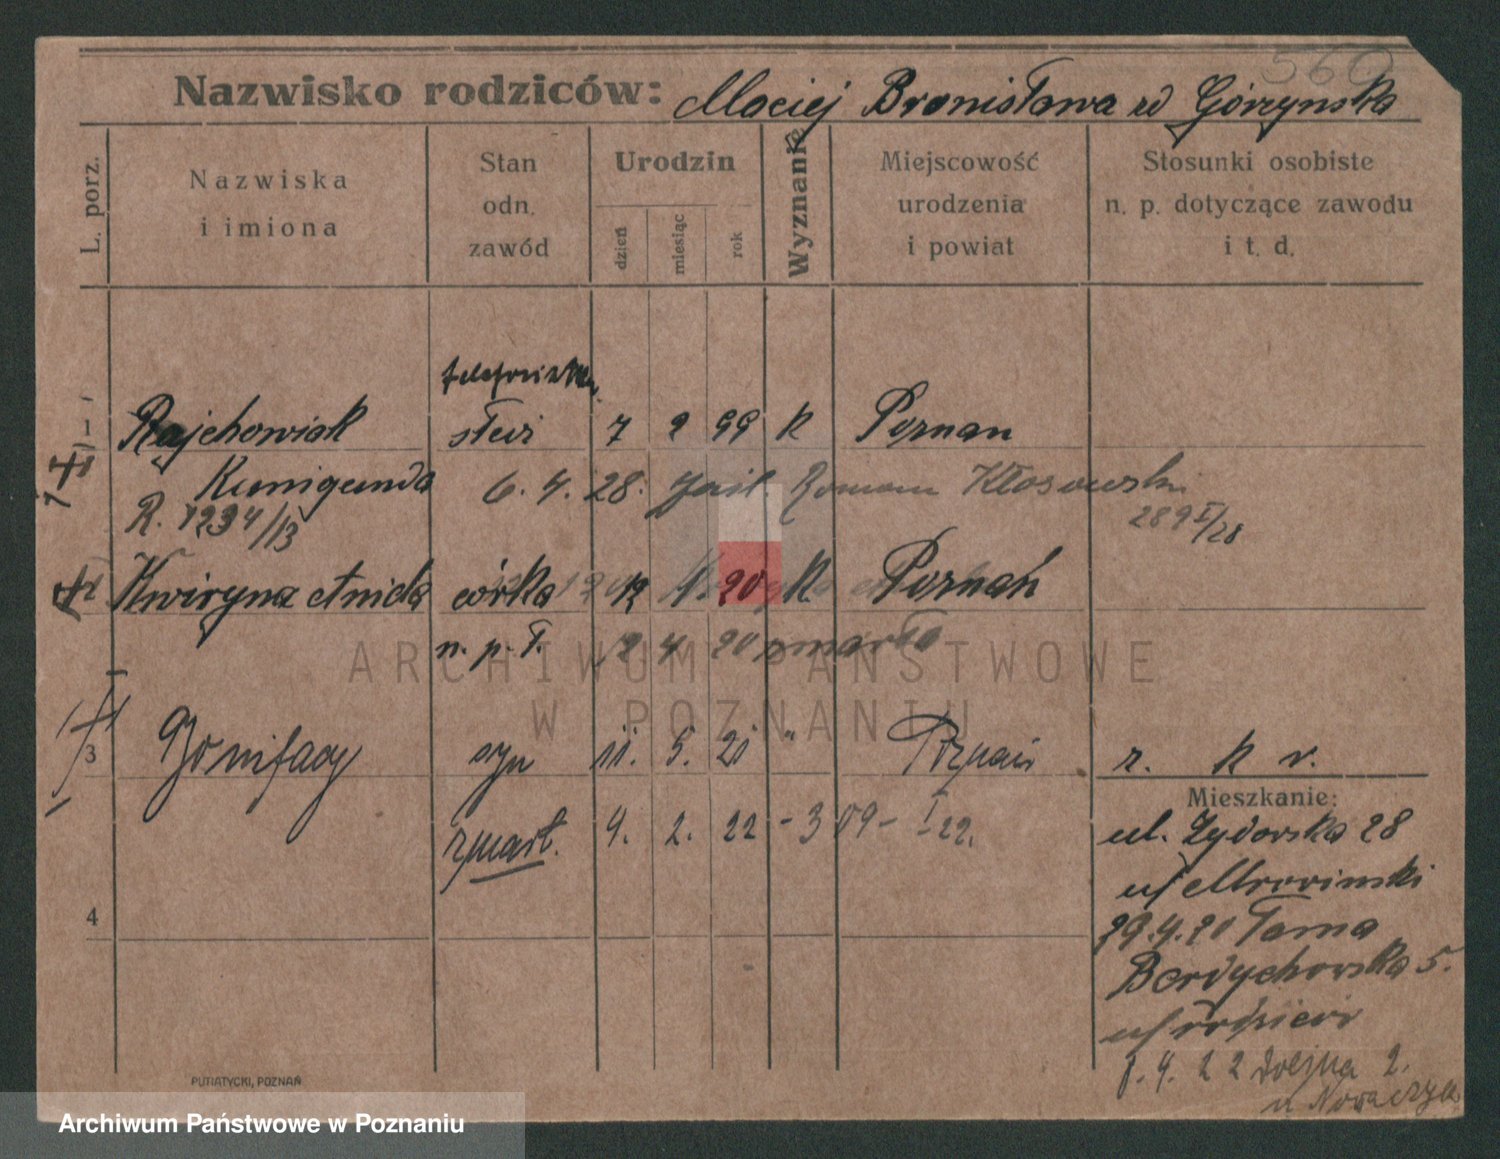 560
Nazwisko rodziców: Maciej Bronisława zd Górzynska
L. porz.
Nazwiska i imiona
Stan odn. zawód
Urodzin
dzień
miesiąc
rok
Wyznanie
Miejscowość urodzenia i powiat
Stosunki osobiste n. p. dotyczące zawodu i t. d.
1 Rajchowiak 7 2 99 k Poznan
Kunigunda 6. 4. 28. Roman Kłosowski
R. 1234/13 289 I/28
Kwiryna Anida córka 12 1. 20 k. Poznań
n. p. ł. 12 4 20 zmarła
3 Bonifacy syn 11. 5. 21 " Poznań r. k v.
zmarł. 4. 2. 22 - 309 - I 22.
Mieszkanie:
ul. Zydowska 28
u/ Mrovinski
29.4.20 Tama
4
Berdychowska 5.
u/ rodzicow
1. 4. 22 Dolna 2.
u Nowaczyk
PUTIATYCKI, POZNAŃ
ARCHIWUM PAŃSTWOWE
W POZNANIU
Archiwum Państwowe w Poznaniu